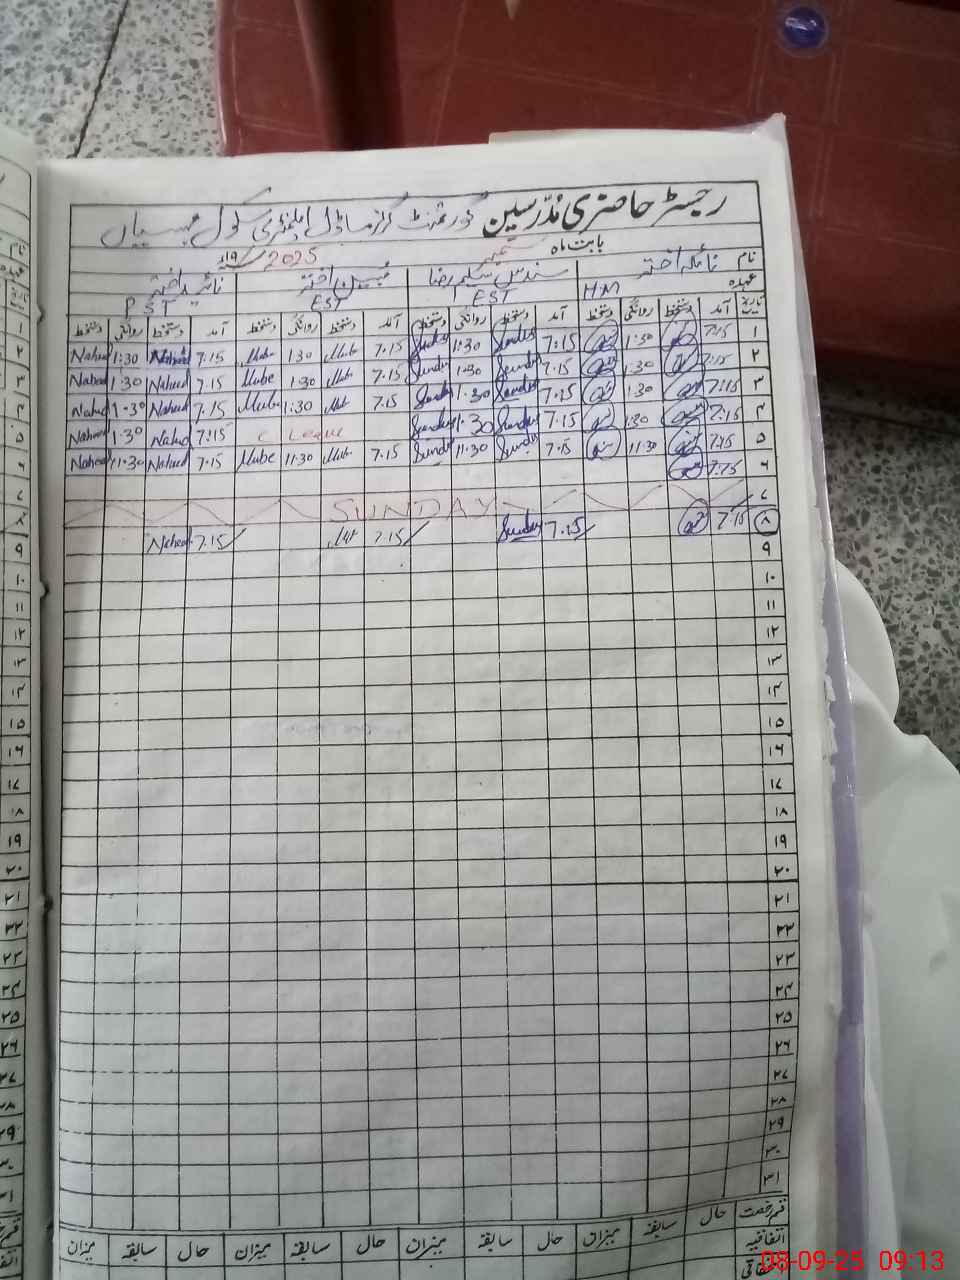 رجسٹر حاضری مدرسین گورنمنٹ گرلز ماڈل ایلیمنٹری سکول
بابت ماہ ستمبر 2025
نام نائلہ اختر سندس سلیم رضا اختر ناہید اختر
عہدہ HM EST EST PST
تاریخ آمد دستخط روانگی دستخط آمد دستخط روانگی دستخط آمد دستخط روانگی دستخط آمد دستخط روانگی دستخط
۱ 7:15 1:30 7:15 Sundus 1:30 Sundus 7.15 Mube 1:30 Mube 7.15 Naheed 1:30 Naheed
۲ 7:15 1:30 7.15 Sundus 1:30 Sundus 7.15 Mube 1:30 Mube 7.15 Naheed 1:30 Naheed
۳ 7:15 1:30 7:15 Sundus 1:30 Sundus 7.15 Mube 1:30 Mube 7.15 Naheed 1:30 Naheed
۴ 7:15 1:30 7.15 Sundus 1:30 Sundus C Leave 7:15 Naheed 1:30 Naheed
۵ 7:15 11:30 7.15 Sundus 11:30 Sundus 7.15 Mube 11:30 Mube 7.15 Naheed 11:30 Naheed
۶ 7:15
۷ SUNDAY
۸ 7:15 7.15 Sundus 7.15 7.15 Naheed
۹
۱۰
۱۱
۱۲
۱۳
۱۴
۱۵
۱۶
۱۷
۱۸
۱۹
۲۰
۲۱
۲۲
۲۳
۲۴
۲۵
۲۶
۲۷
۲۸
۲۹
۳۰
۳۱
قسم رخصت حال سابقہ میزان حال سابقہ میزان حال سابقہ میزان حال سابقہ میزان
اتفاقیہ
08-09-25 09:13